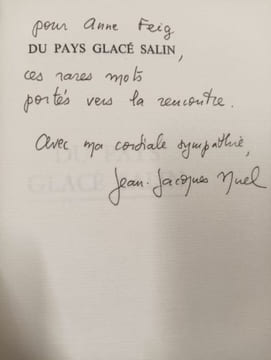 pour Anne Feig
DU PAYS GLACÉ SALIN,
ces rares mots
portés vers la rencontre.
Avec ma cordiale sympathie,
Jean-Jacques Nuel
DU PAYS
GLACÉ SALIN